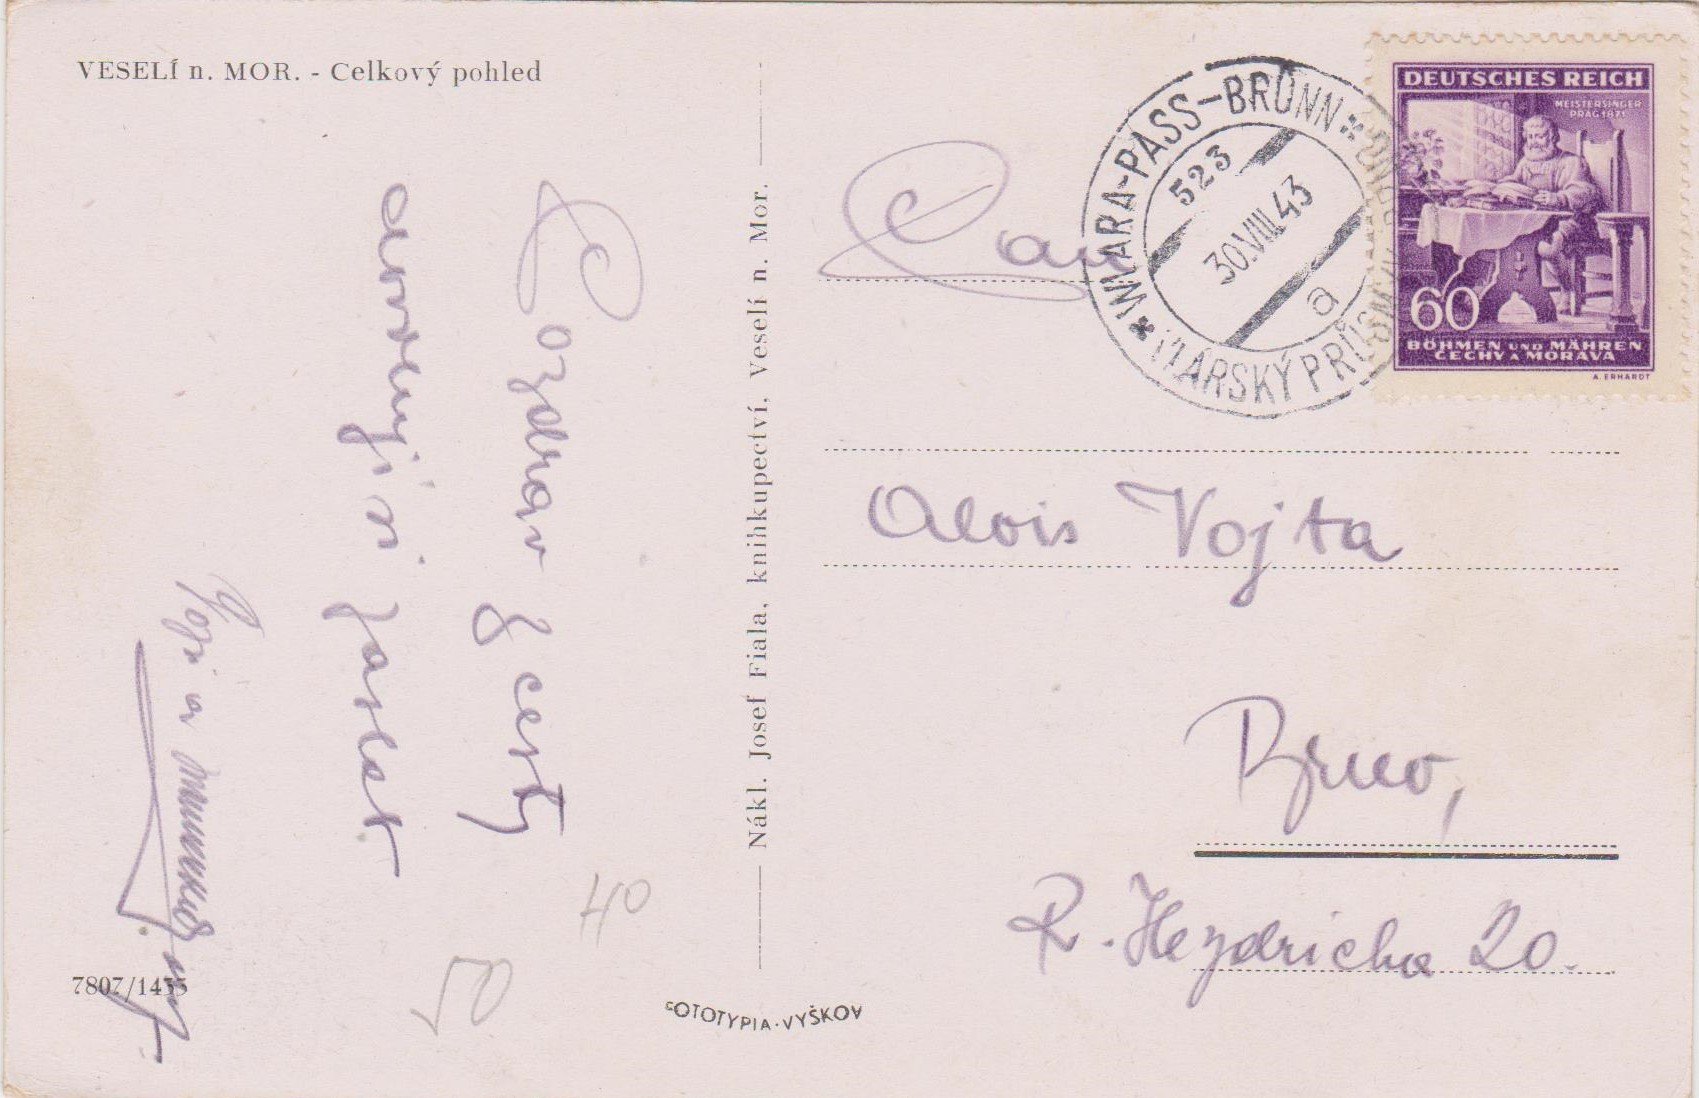 VESELÍ n. MOR. - Celkový pohled
Pozdrav z cesty
Jarek
a
7807/1435
40
Nákl. Josef Fiala, knihkupectví, Veselí n. Mor.
FOTOTYPIA-VYŠKOV
WLARA-PASS-BRÜNN
523
30.VIII.43
a
VLÁRSKÝ PRŮSMYK
DEUTSCHES REICH
MEISTERSINGER
PRAG 1871
60
BÖHMEN UND MÄHREN
ČECHY A MORAVA
A. ERHARDT
Pan
Alois Vojta
Brno,
R. Heydricha 20.